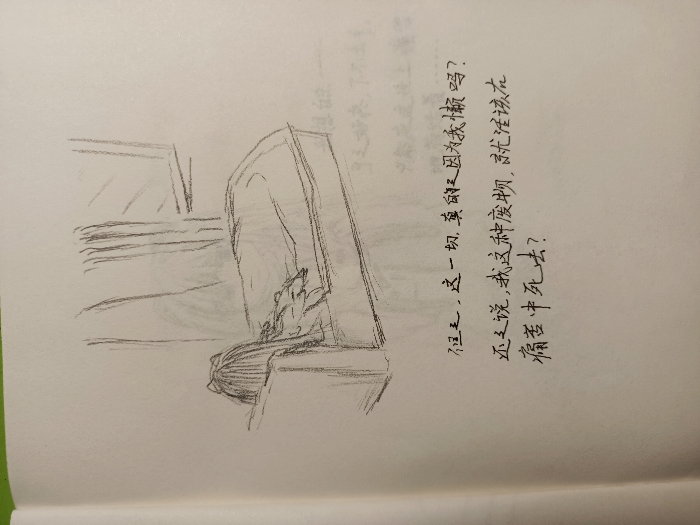 但是，这一切，真的是因为我懒吗？
还是说，我这种废物，就活该在
痛苦中死去？